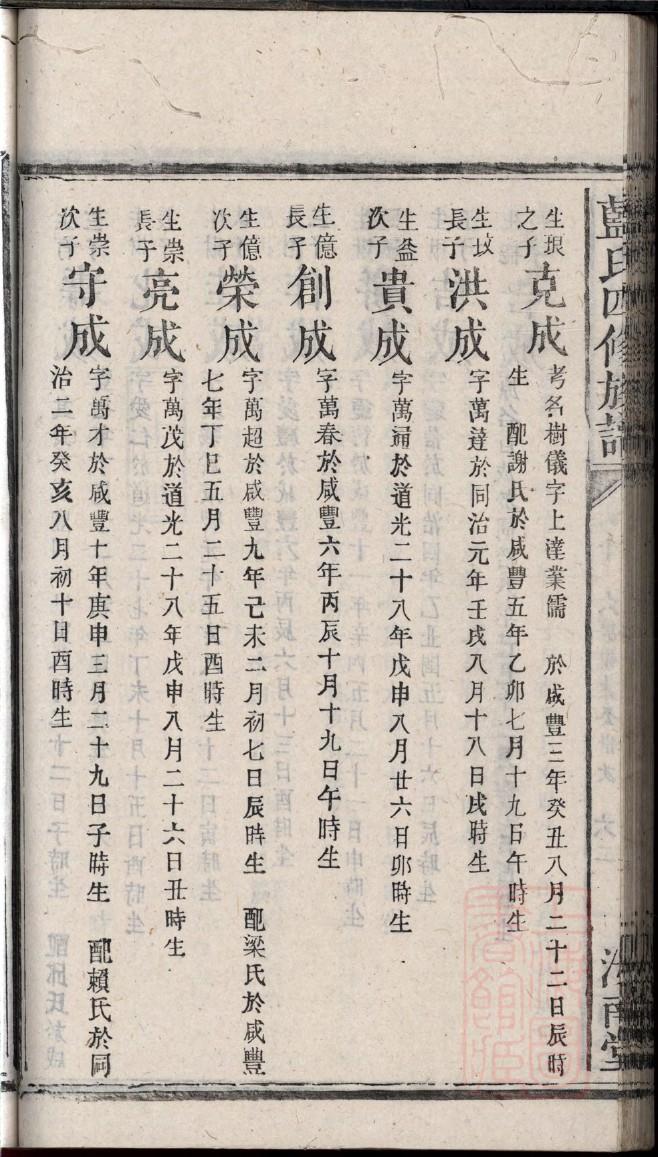 藍氏四修族譜
生琅
之子
克成
考名樹儀字上達業儒 於咸豐三年癸丑八月二十二日辰時
生 配謝氏於咸豐五年乙卯七月十九日午時生
長子
洪成
字萬達於同治元年壬戌八月十八日戌時生
生益
次子
貴成
字萬補於道光二十八年戊申八月廿六日卯時生
生億
長子
創成
字萬春於咸豐六年丙辰十月十九日午時生
生億
次子
榮成
字萬超於咸豐九年己未二月初七日辰時生 配梁氏於咸豐
七年丁巳五月二十五日酉時生
生崇
長子
亮成
字萬茂於道光二十八年戊申八月二十六日丑時生
生崇
次子
守成
字萬才於咸豐十年庚申三月二十九日子時生 配賴氏於同
治二年癸亥八月初十日酉時生